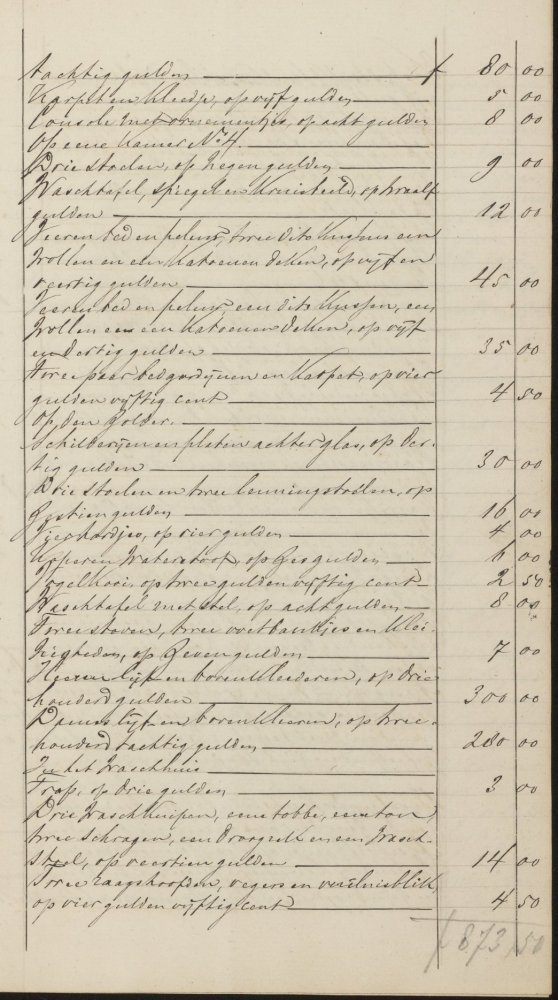 tachtig gulden f 80 00
Karpet en kleedje, op vijf gulden 5 00
Console met ornementjes, op acht gulden 8 00
Op eene kamer No 4.
Drie stoelen, op negen gulden 9 00
Waschtafel, spiegel en kruisbeeld, op twaalf
gulden 12 00
Veeren bed en peluw, twee dito kussens een
wollen en een katoenen deken, op vijf en
veertig gulden 45 00
Veeren bed en peluw, een dito kussen, een
wollen en een katoenen deken, op vijf
en dertig gulden 35 00
Twee paar bedgordijnen en karpet, op vier
gulden vijftig cent 4 50
Op den zolder.
Schilderijen en platen achter glas, op der-
tig gulden 30 00
Drie stoelen en twee leuningstoelen, op
zestien gulden 16 00
op vier gulden 4 00
Koperen waterstoof, op zes gulden 6 00
Vogelkooi, op twee gulden vijftig cent 2 50
Waschtafel met stel, op acht gulden 8 00
Twee stoven, twee voetbankjes en klei-
nigheden, op zeven gulden 7 00
Heeren lijf en bovenkleederen, op drie
honderd gulden 300 00
Dames lijf en bovenkleeren, op twee-
honderd tachtig gulden 280 00
In het waschhuis
Trap, op drie gulden 3 00
Drie waschkuipen, eene tobbe, een ton,
twee schragen, een droogrek en een wasch-
stoel, op veertien gulden 14 00
Twee raagshoofden, vegers en vuilnisblik,
op vier gulden vijftig cent 4 50
f 873,50